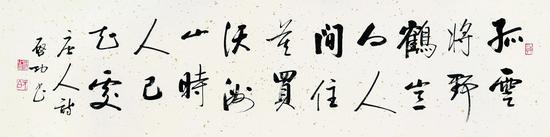 孤雲
將野
鶴豈
向人
間住
莫買
沃洲
山時
人已
知處
唐人詩
啟功書